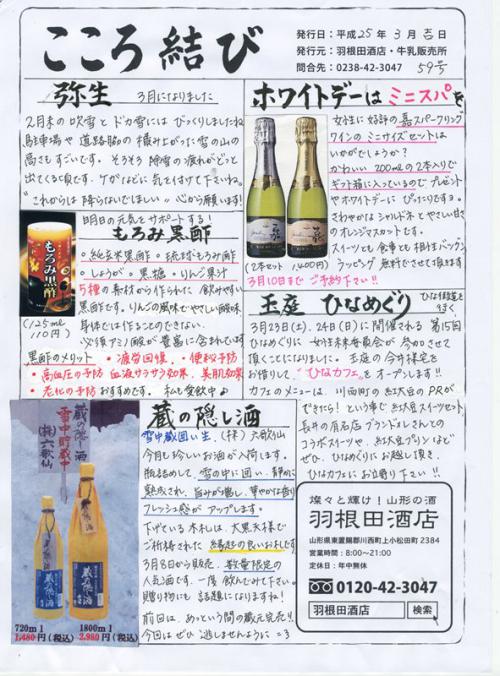 こころ結び
発行日：平成25年3月吉日
発行元：羽根田酒店・牛乳販売所
問合先：0238-42-3047 59号
弥生 3月になりました
2月末の吹雪とドカ雪にはびっくりしましたね
駐車場や道路脇の積み上がった雪の山の
高さもすごいです。そろそろ除雪の疲れがどっと
出てくる頃です。ケガなどに気を付けて下さいね。
"これからは降らないでほしい"心から願います!
明日の元気をサポートする!
もろみ黒酢
・純玄米黒酢・琉球もろみ酢
・しょうが・黒糖・りんご果汁
5種の素材から作られた 飲みやすい
黒酢です。りんごの風味でやさしい酸味
身体では作ることのできない
必須アミノ酸が豊富に含まれています
もろみ黒酢
(125ml
110円)
黒酢のメリット・疲労回復、・便秘予防
・高血圧の予防・血液サラサラ効果、・美肌効果
・老化の予防 おすすめです。私も愛飲中♪
ホワイトデーは ミニスパを
女性に好評の嘉スパークリング
ワインのミニサイズセットは
いかがでしょうか?
かわいい200mlの2本入りで
ギフト箱に入っているのでプレゼント
やホワイトデーにぴったりですョ。
さわやかなシャルドネとやさしい甘さ
のオレンジマスカットです。
スイーツとも食事とも相性バツグン。
ラッピング無料でさせて頂きます
(2本セット 1,400円)
3月10日までにご予約下さい!!
玉庭 ひなめぐり ひな街道を
3月23日(土)、24日(日)に開催される 第15回
ひなめぐりに 女性未来委員会が参加させて
頂くことになりました。玉庭の今井様宅を
お借りして、"ひなカフェ"をオープンします!!
カフェのメニューは、川西町の紅大豆のPRが
できたら!という事で 紅大豆スイーツセット、
長井の
コラボスイーツや、紅大豆プリンなど
ぜひ、ひなめぐりにお越し頂き、
ひなカフェにお立寄り下さい!!
蔵の隠し酒
雪中蔵囲い生、(株)六歌仙
今月も珍しいお酒が入荷します。
瓶詰めして、雪の中に囲い、静かに
熟成され、旨みが増し、華やかな香り
フレッシュ感がアップします。
下げている木札は、大黒天様で
ご祈祷された 縁起の良いお札です
3月8日から発売、数量限定の
人気酒です。一度飲んでみて下さい。
贈り物にも話題になりますね!
前回は、あっという間の蔵元完売!!
今回はぜひ逃しませんように
蔵の隠し酒
雪中貯蔵中
(株)六歌仙
720ml
1,480円(税込)
1800ml
2,980円(税込)
燦々と輝け!山形の酒
羽根田酒店
山形県東置賜郡川西町上小松田町2384
営業時間：8:00~21:00
定休日：年中無休
0120-42-3047
羽根田酒店 検索